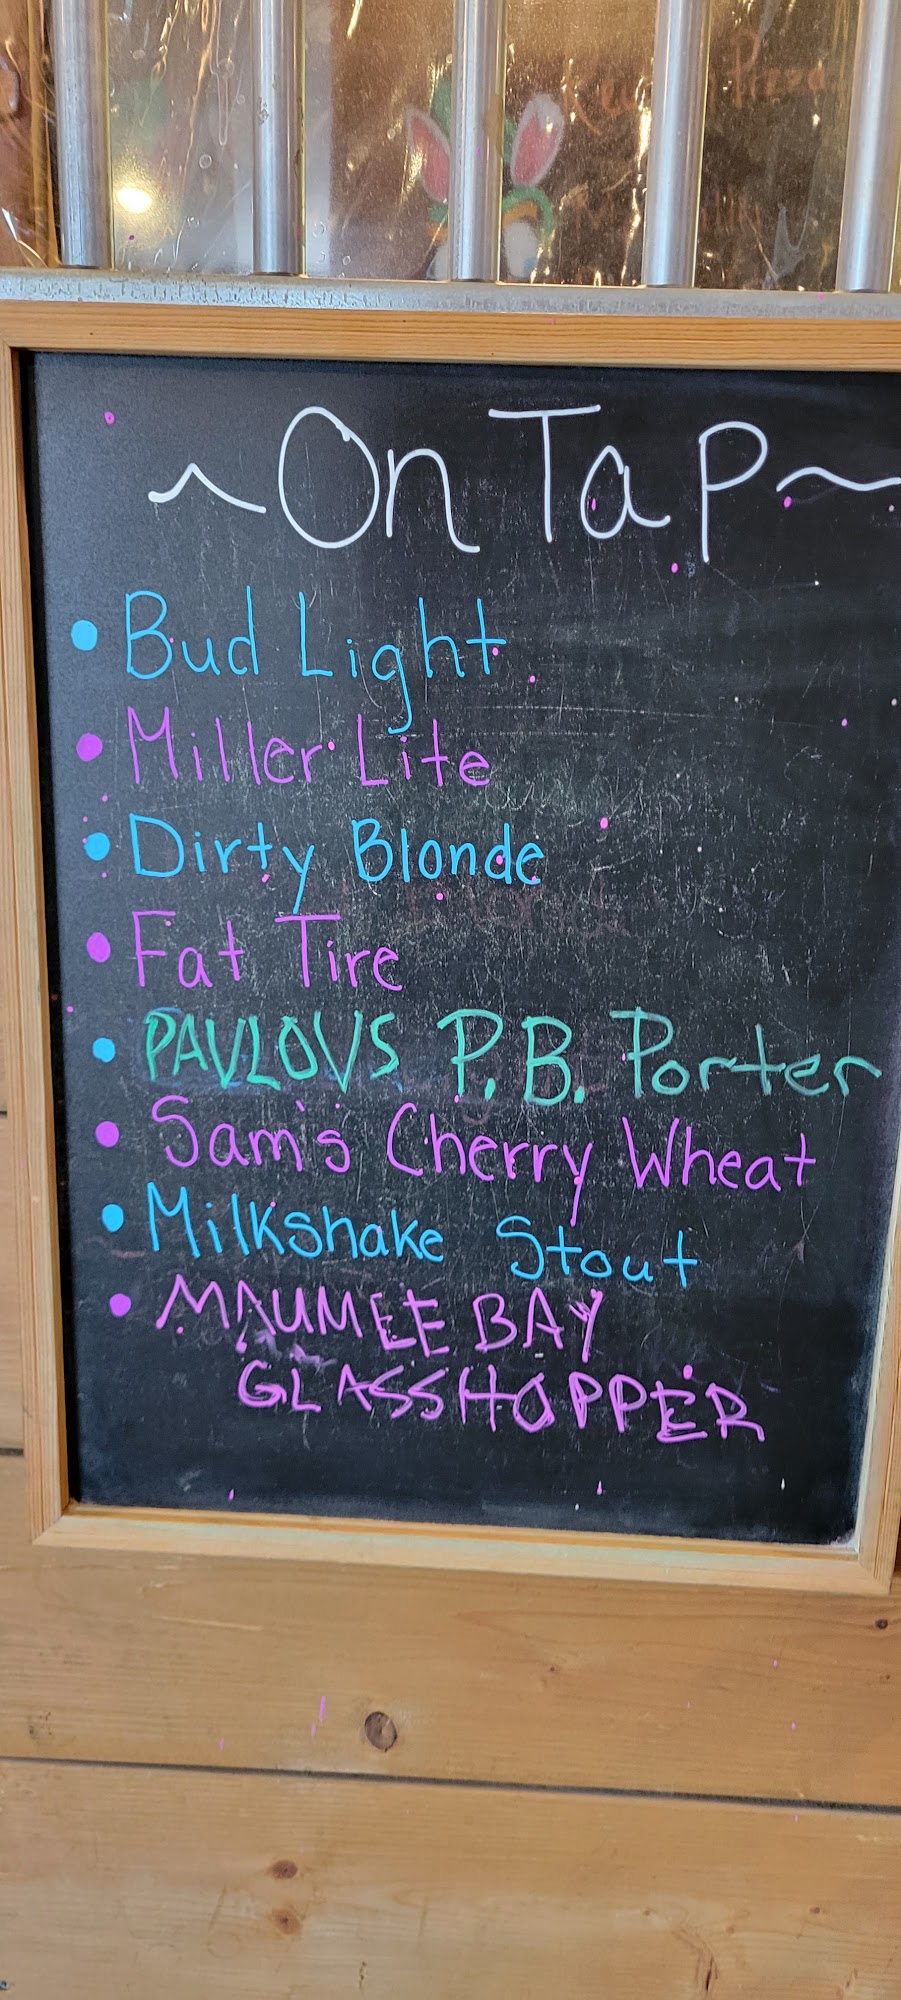 ~On Tap~
• Bud Light
• Miller Lite
• Dirty Blonde
• Fat Tire
• PAVLOVS P.B. Porter
• Sam's Cherry Wheat
• Milkshake Stout
• MAUMEE BAY
GLASSHOPPER